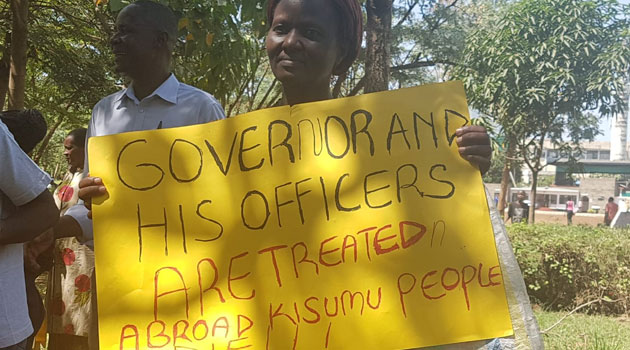 GOVERNOR AND
HIS OFFICERS
ARE TREATED
ABROAD KISUMU PEOPLE
DIE!!!